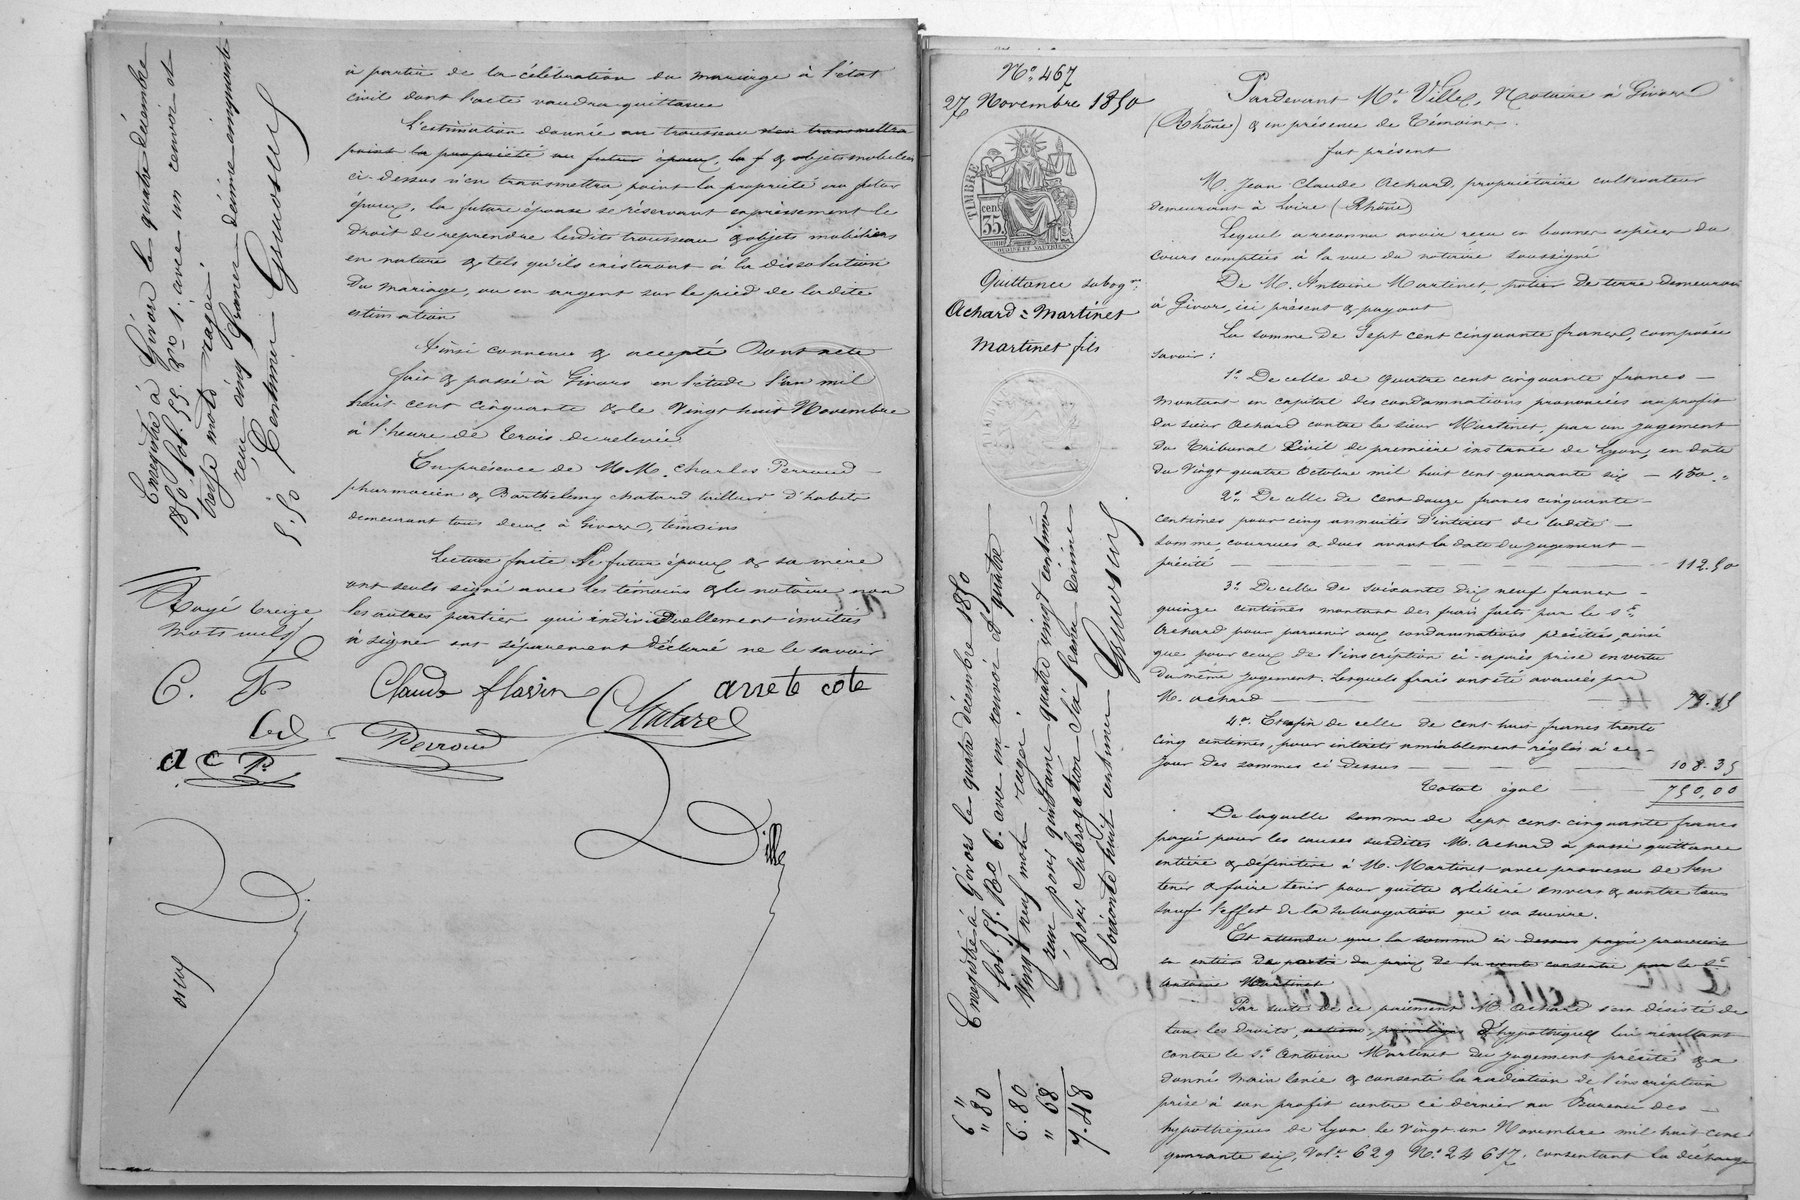 à partir de la célébration du mariage à l'état
civil dont l'acte vaudra quittance
L'estimation donnée au trousseau n'en transmettra
point la propriété au futur époux, la f & objets mobiliers
ci-dessus n'en transmettra point la propriété au futur
époux, la future épouse se réservant expressément le
droit de reprendre lesdits trousseau & objets mobiliers
en nature & tels qu'ils existeront à la dissolution
du mariage, ou en argent sur le pied de ladite
estimation
Ainsi convenu & accepté Dont acte
fait & passé à Givors en l'étude l'an mil
huit cent cinquante & le vingt huit Novembre
à l'heure de trois de relevée
En présence de MM. Charles Perroud
pharmacien & Barthelemy Chatard tailleur d'habits
demeurant tous deux à Givors, témoins
Lecture faite le futur époux & sa mère
ont seuls signé avec les témoins & le notaire non
les autres parties qui individuellement invitées
à signer ont séparément déclaré ne le savoir
Claude flassin
anete cote
Chatard
Perroud
Ville
Enregistré à Givors le quatre décembre
1850. fol. 55. Ro 1. avec un renvoi et
treize mots rayés
reçu cinq francs décime cinquante
centimes
5.50
Rayé treize
mots nuls
C. F
a c P.
N° 467
27 Novembre 1850
TIMBRE
cen.
35
Quittance subog.on
Achard = Martinet
Martinet fils
Enregistré à Givors le quatre décembre 1850
fol. 55. Ro 6. avec un renvoi et quatre
vingt neuf mots rayés
reçu pour quittance quatre vingt centimes
pour subrogation six francs décime
soixante huit centimes
6 "
" 80
6.80
" 68
7.48
Pardevant Me Ville, Notaire à Givors
(Rhône) & en présence de témoins.
fut présent
M. Jean Claude Achard, propriétaire cultivateur
demeurant à Loire (Rhône)
Lequel a reconnu avoir reçu en bonnes espèces du
cours comptées à la vue du notaire soussigné
De M. Antoine Martinet, potier de terre demeurant
à Givors, ici présent & payant
La somme de sept cent cinquante francs, composée
savoir :
1°. De celle de quatre cent cinquante francs
montant en capital des condamnations prononcées au profit
du sieur Achard contre le sieur Martinet, par un jugement
du Tribunal Civil de première instance de Lyon, en date
du vingt quatre Octobre mil huit cent quarante six — 450.
2°. De celle de cent douze francs cinquante
centimes pour cinq annuités d'intérêts de ladite
somme, courrues & dues avant la date du jugement
précité — 112.50
3°. De celle de soixante dix neuf francs
quinze centimes montant des frais faits par le sr
Achard pour parvenir aux condamnations précitées, ainsi
que pour ceux de l'inscription ci-après prise en vertu
du même jugement. Lesquels frais ont été avancés par
M. Achard — 79.15
4°. Et enfin de celle de cent huit francs trente
cinq centimes, pour intérêts amiablement réglés à ce
jour des sommes ci dessus — 108.35
Total égal — 750,00
De laquelle somme de sept cent cinquante francs
payée pour les causes susdites M. Achard a passé quittance
entière & définitive à M. Martinet avec promesse de l'en
tenir & faire tenir pour quitte & libéré envers & contre tous
sauf l'effet de la subrogation qui va suivre.
Est attendu que la somme ci dessus payée provient
en entier de partie du prix de la vente consentie par le sr
Antoine Martinet
Par suite de ce paiement M. Achard s'est désisté de
tous les droits, action, privilège d'hypothèques lui résultant
contre le sr Antoine Martinet du jugement précité & a
donné main levée & consenti la radiation de l'inscription
prise à son profit contre ce dernier au Bureau des
hypothèques de Lyon le vingt un Novembre mil huit cent
quarante six, Vol. 629 N° 24 617, consentant la décharge